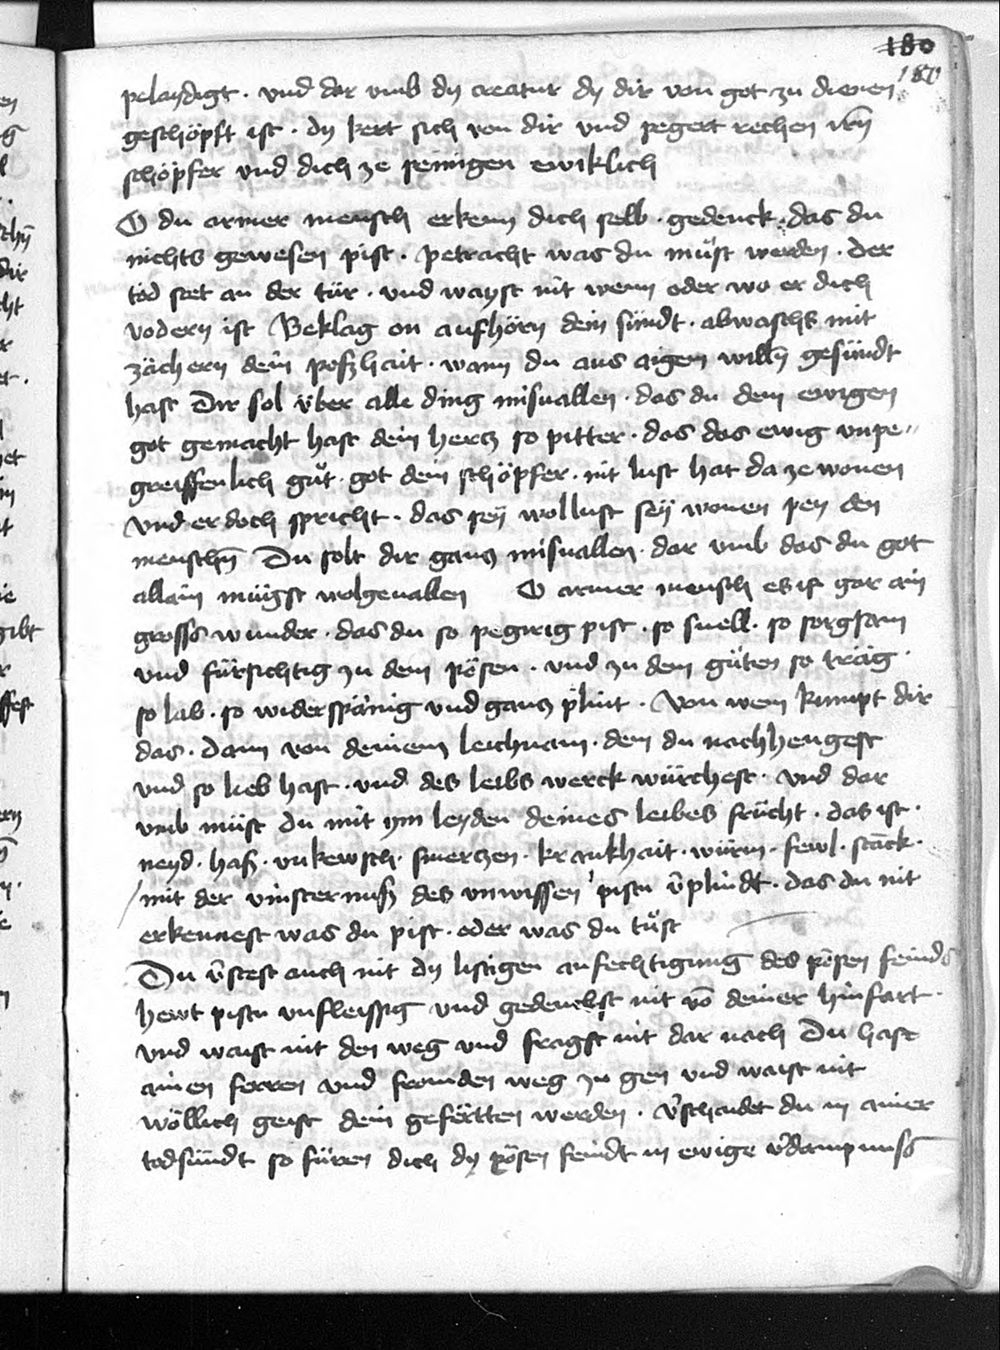 180
180
pelaydigt · vnd dar vmb dy creatur dy dir von got zu dienen
geschöpft ist · dy kert sich von dir vnd pegert rechen irn̄
schöpfer vnd dich ze peinigen ewiklich
O du armer mensch erkenn dich selb · gedenck · das du
nichts gewesen pist · petracht was du müst werden · der
tod stet an der tür · vnd wayst nit wenn oder wo er dich
vodern ist Beklag on aufhörn dein sündt · abwaschs mit
zächern dein poszhait · wann du aus aigem willn̄ gesündt
hast Dir sol über alle ding misuallen · das du dem ewigen
got gemacht hast dein hercz so pitter · das das ewig vnpe„
greiffenlich güt · got dein schöpfer · nit lust hat da ze wonen
vnd er doch spricht · das sein wollust seÿ wonen peÿ den
menschn̄ Du solt dir gancz misuallen · dar vmb das du got
allain mügst wolgeuallen O armer mensch es ist gar ain
gross wunder · das du so pegirig pist · so snell · so sorgsam
vnd fürsichtig zu dem pösen · vnd zu dem güten so träg ·
so lab · so widerspänig vnd gancz plint · Von wem kumpt dir
das · Dann von deinem leichnam · dem du nachhengest
vnd so lieb hast · vnd des leibs werck würchest · vnd dar
vmb müst du mit ym leyden deines leibes frücht · das ist ·
neyd · hasz · vnkewsch · smerczen · krankhait · würm · fewl · stanck ·
mit der vinsternusz des vnwissen pistu v̄plindt · das du nit
erkennest was du pist · oder was du tüst
Du v̄stest auch nit dy listigen anfechtigung des pösen feinds
hewt pistu vnfleissig vnd gedenckst nit vō deiner hinfart ·
vnd waist nit den weg vnd fragst nit dar nach Du hast
ainen ferren vnd fremden weg zu gen vnd waist nit
wöllich geist dein gefertten werden · v̄schaidet du in ainer
todsündt so füren dich dy pösen feindt in ewige v̄dampnuss